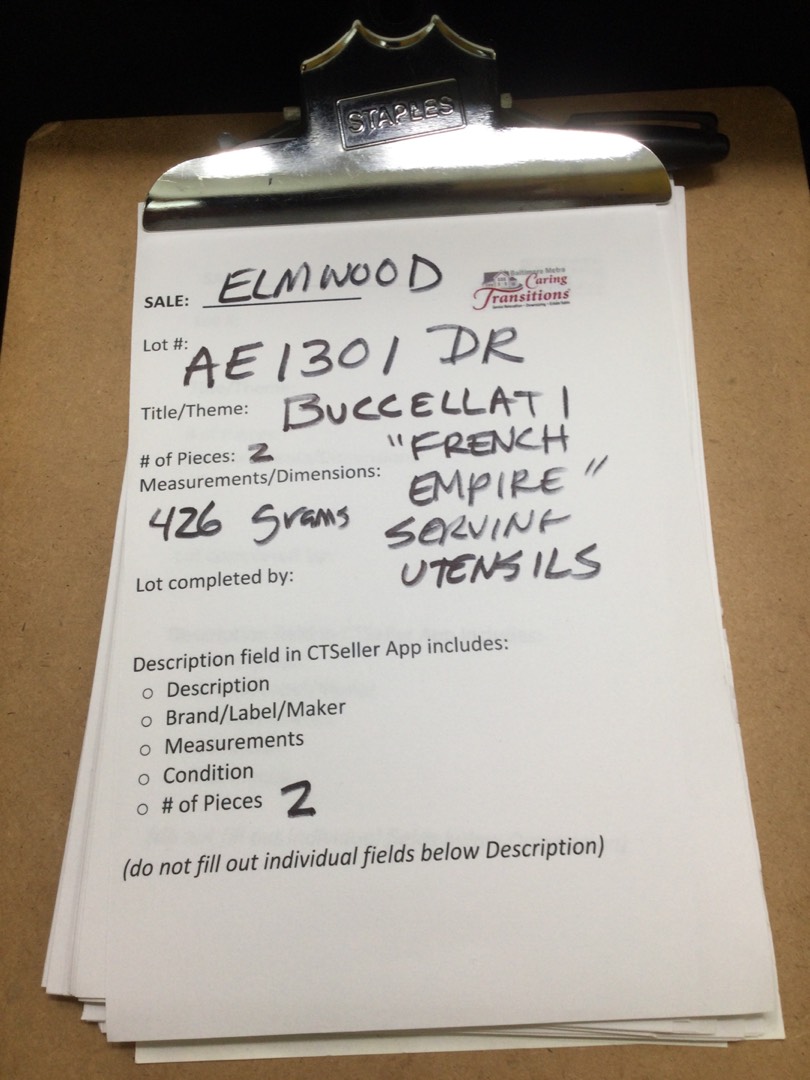 STAPLES
SALE: ELMWOOD
Baltimore Metro
Caring
Transitions
Lot #: AE1301 DR
Title/Theme: BUCCELLATI
# of Pieces: 2 "FRENCH
Measurements/Dimensions: EMPIRE"
426 grams SERVING
Lot completed by: UTENSILS
Description field in CTSeller App includes:
○ Description
○ Brand/Label/Maker
○ Measurements
○ Condition
○ # of Pieces 2
(do not fill out individual fields below Description)